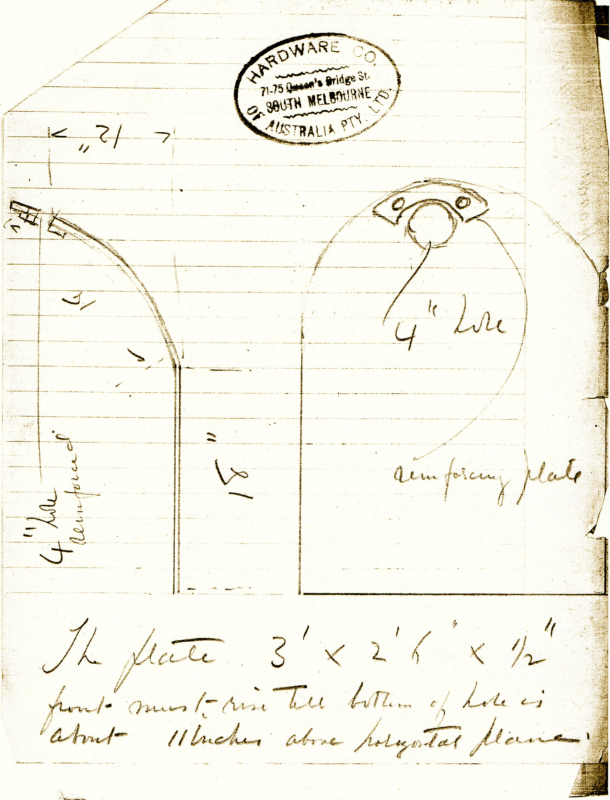 HARDWARE CO.
71-75 Queen's Bridge St.
SOUTH MELBOURNE
OF AUSTRALIA PTY. LTD.
12"
4" hole
reinforcing plate
4" hole
reinforced
The plate 3' x 2' 6" x 1/2"
front must rise till bottom of hole is
about 11 inches above horizontal plane.